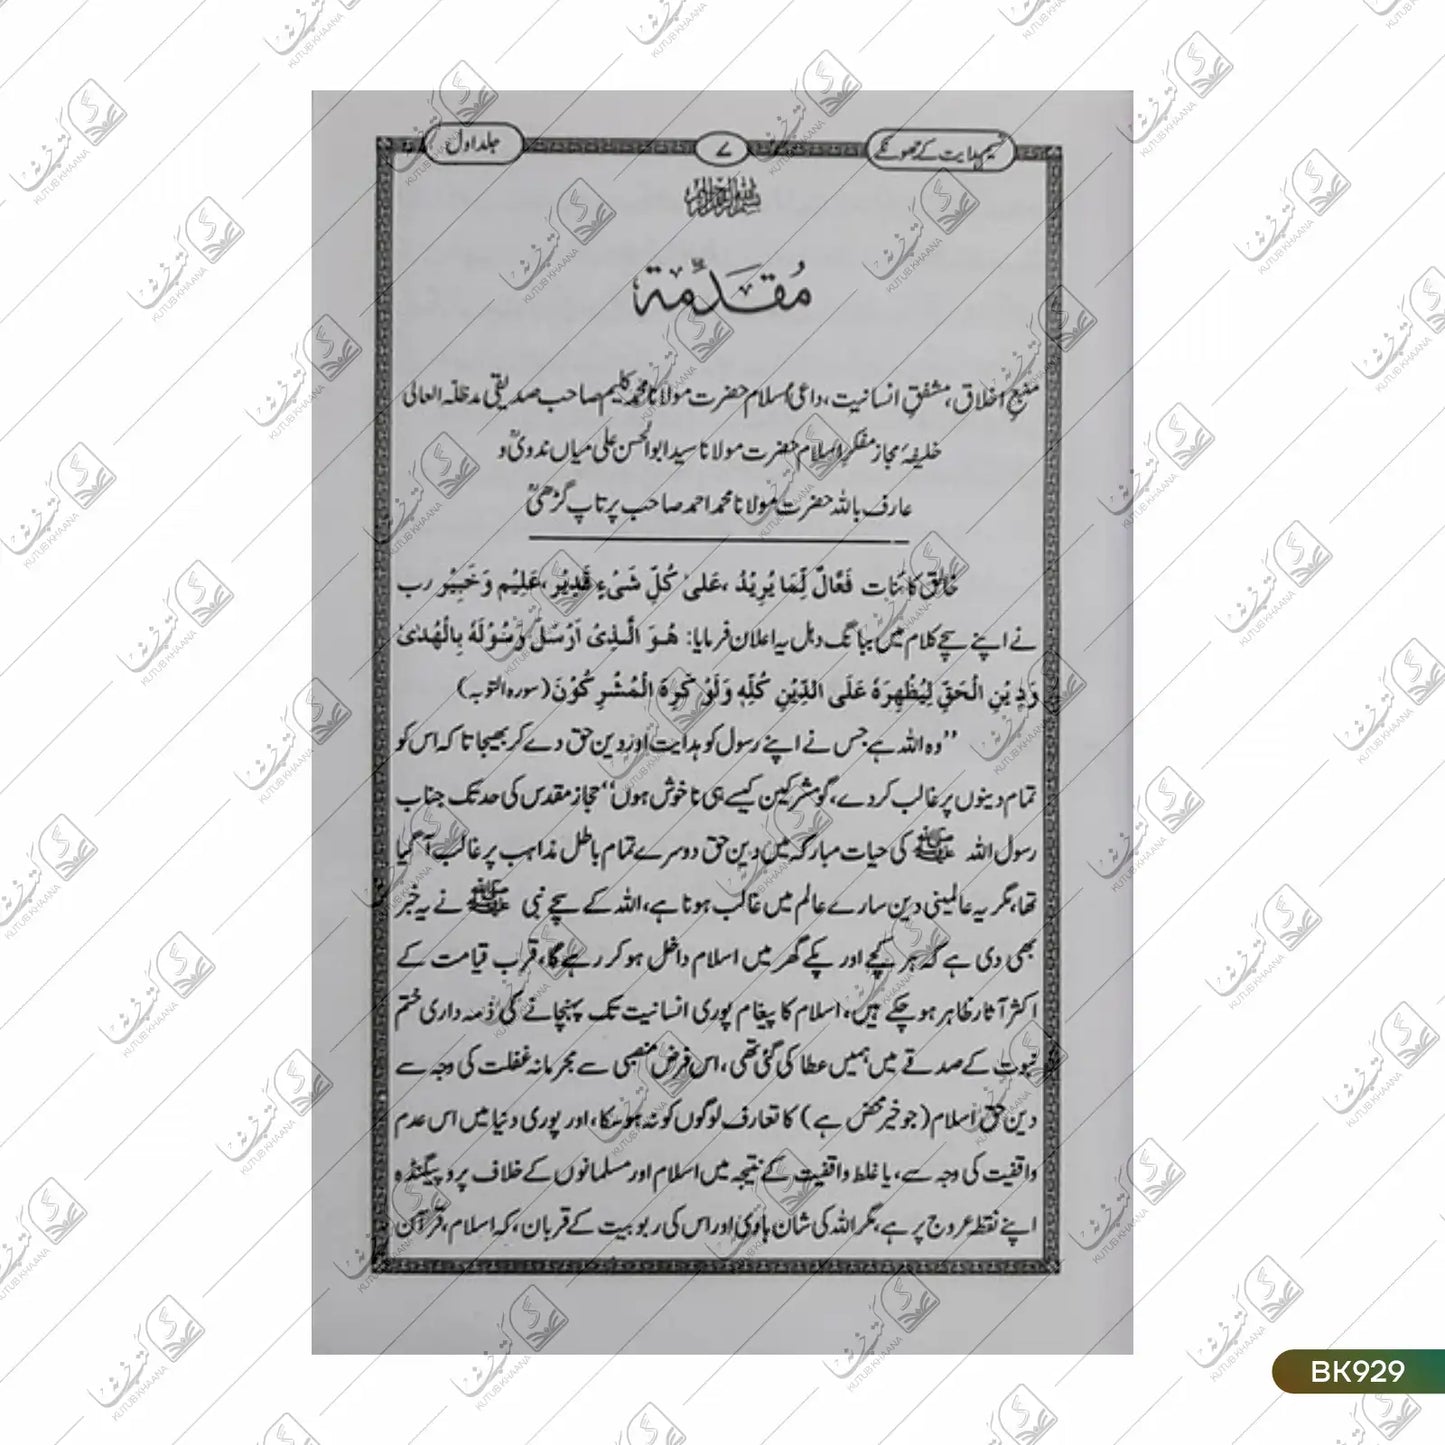 نسیم ہدایت کے جھونکے
۷
جلد اول
بسم اللہ الرحمن الرحیم
مُقَدِّمَۃ
منبعِ اخلاق، مشفقِ انسانیت، داعیٔ اسلام حضرت مولانا محمد کلیم صاحب صدیقی مدظلہ العالی
خلیفۂ مجاز مفکرِ اسلام حضرت مولانا سید ابوالحسن علی میاں ندویؒ و
عارف باللہ حضرت مولانا محمد احمد صاحب پرتاپ گڑھیؒ
خالق کائنات فَعَّالٌ لِّمَا یُرِیْدُ، عَلیٰ کُلِّ شَیْءٍ قَدِیْر، عَلِیْم وَ خَبِیْر رب
نے اپنے سچے کلام میں ببانگ دہل یہ اعلان فرمایا: ھُوَ الَّذِیْ اَرْسَلَ رَسُوْلَهٗ بِالْهُدٰی
وَدِیْنِ الْحَقِّ لِیُظْهِرَهٗ عَلَی الدِّیْنِ کُلِّهٖ وَلَوْ کَرِهَ الْمُشْرِکُوْنَ (سورہ التوبہ)
’’وہ اللہ ہے جس نے اپنے رسول کو ہدایت اور دین حق دے کر بھیجا تا کہ اس کو
تمام دینوں پر غالب کر دے، گو مشرکین کیسے ہی ناخوش ہوں‘‘ حجاز مقدس کی حد تک جناب
رسول اللہ ﷺ کی حیات مبارکہ میں دین حق دوسرے تمام باطل مذاہب پر غالب آ گیا
تھا، مگر یہ عالمینی دین سارے عالم میں غالب ہونا ہے، اللہ کے سچے نبی ﷺ نے یہ خبر
بھی دی ہے کہ ہر کچے اور پکے گھر میں اسلام داخل ہو کر رہے گا، قرب قیامت کے
اکثر آثار ظاہر ہو چکے ہیں، اسلام کا پیغام پوری انسانیت تک پہنچانے کی ذمہ داری ختم
نبوت کے صدقے میں ہمیں عطا کی گئی تھی، اس فرض منصبی سے مجرمانہ غفلت کی وجہ سے
دین حق اسلام (جو خیر محض ہے) کا تعارف لوگوں کو نہ ہو سکا، اور پوری دنیا میں اس عدم
واقفیت کی وجہ سے، یا غلط واقفیت کے نتیجہ میں اسلام اور مسلمانوں کے خلاف پروپیگنڈہ
اپنے نقطہ عروج پر ہے، مگر اللہ کی شان ہادی اور اس کی ربوبیت کے قربان، کہ اسلام، قرآن
BK929